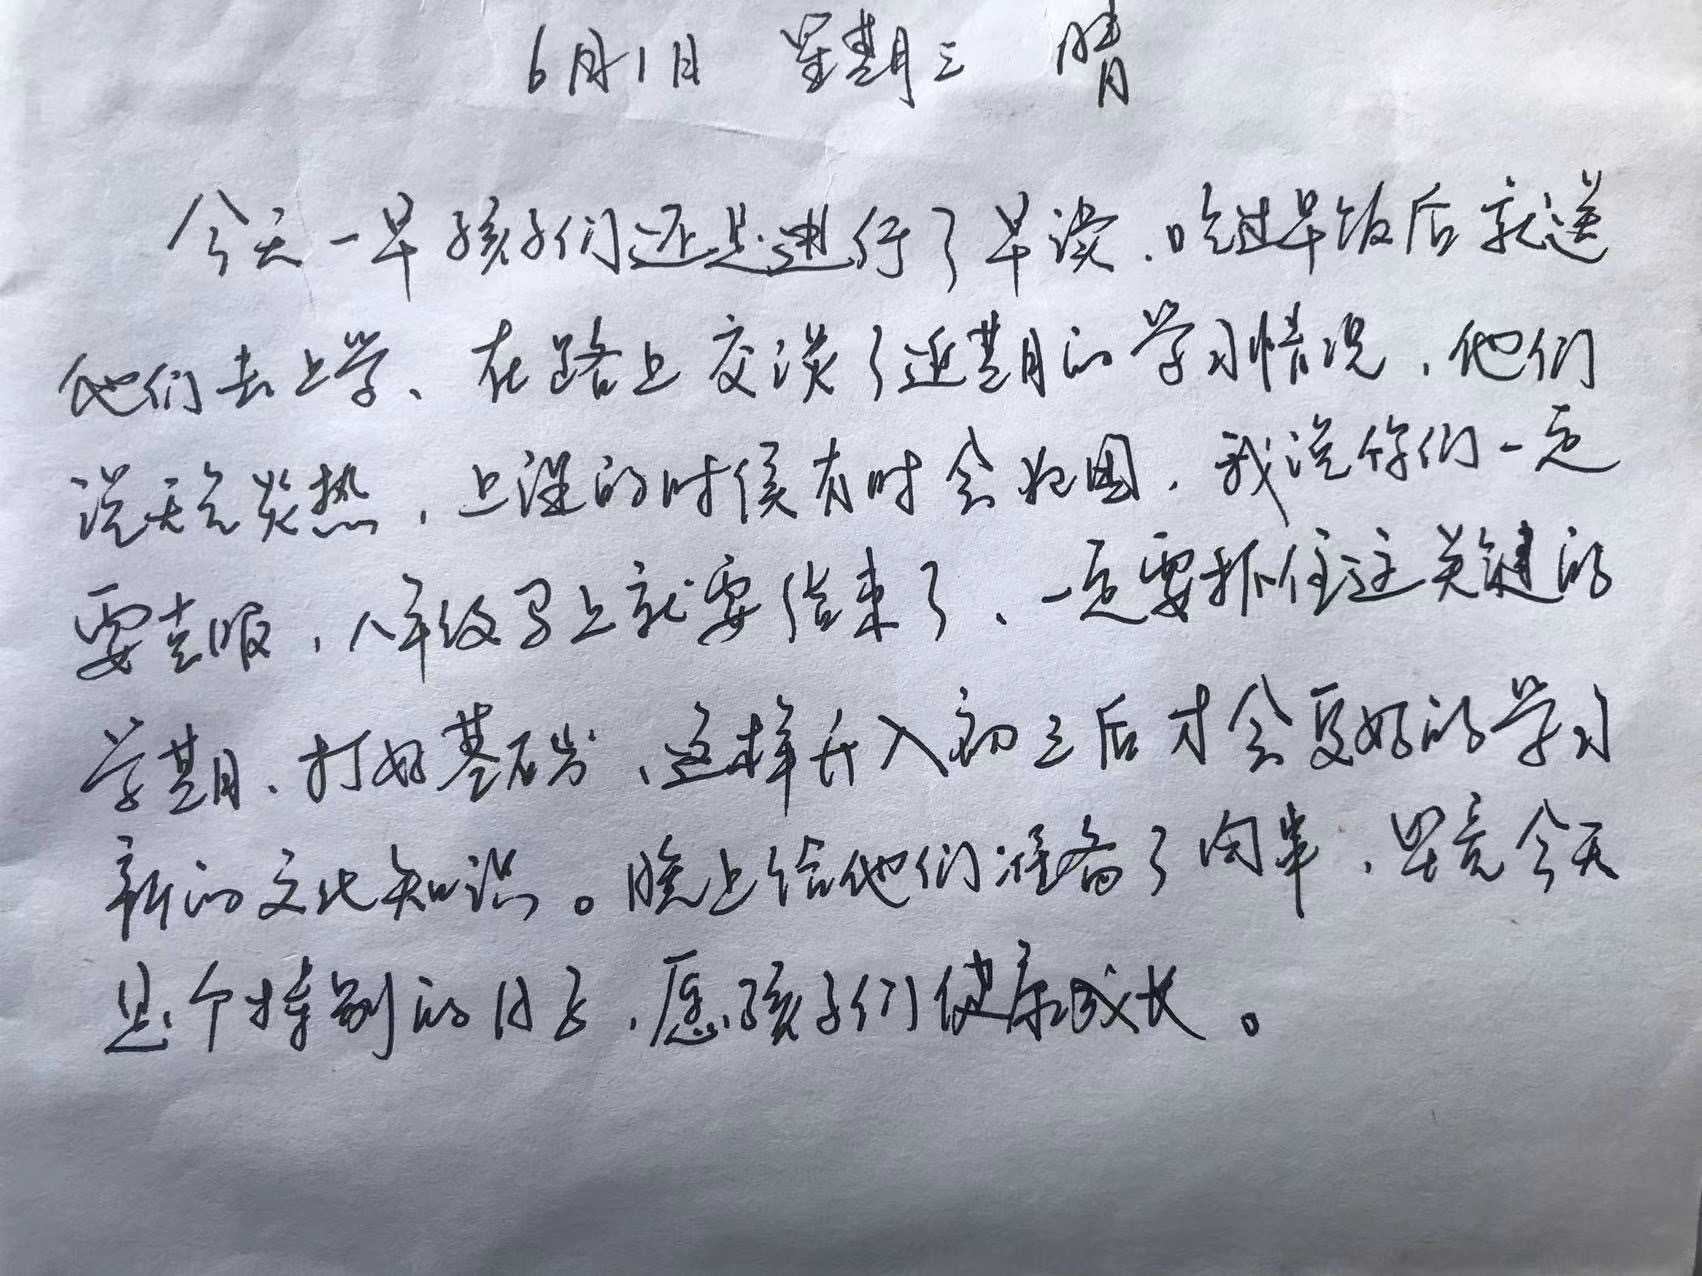 6月1日 星期三 晴
今天一早孩子们还是进行了早读，吃过早饭后就送
他们去上学、在路上交谈了近期的学习情况，他们
说天气炎热，上课的时候有时会犯困，我说你们一定
要克服，八年级马上就要结束了、一定要抓住这关键的
学期、打好基础、这样升入初三后才会更好的学习
新的文化知识。晚上给他们准备了肉串，毕竟今天
是个特别的日子，愿孩子们健康成长。